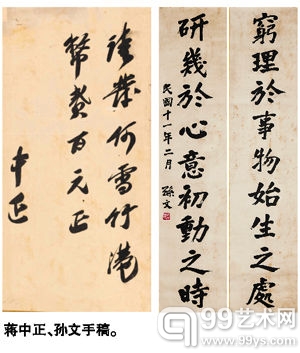 請發何雪竹港
幣貳百元正
中正
窮理於事物始生之處
研幾於心意初動之時
民國十一年二月 孫文
蒋中正、孙文手稿。
99艺术网
www.99ys.com